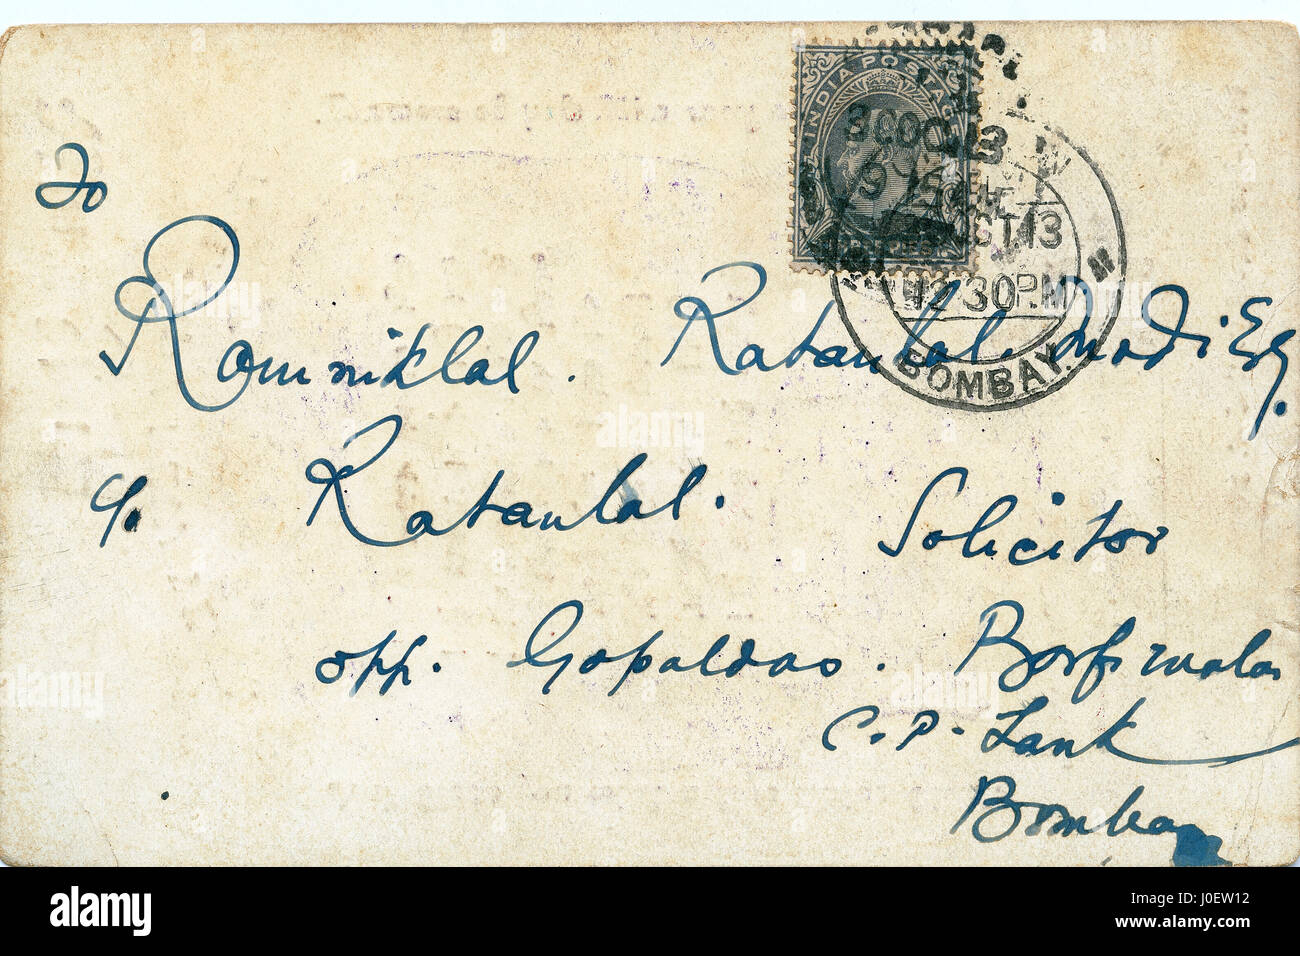 INDIA POSTAGE
3 OC 13
OCT.13
12·30 P.M
BOMBAY.
To
Romniklal. Ratanlal. Modi Esq.
c/o. Ratanlal. Solicitor
opp. Gopaldas.
C.P. Tank
Bombay
alamy
J0EW12
www.alamy.com